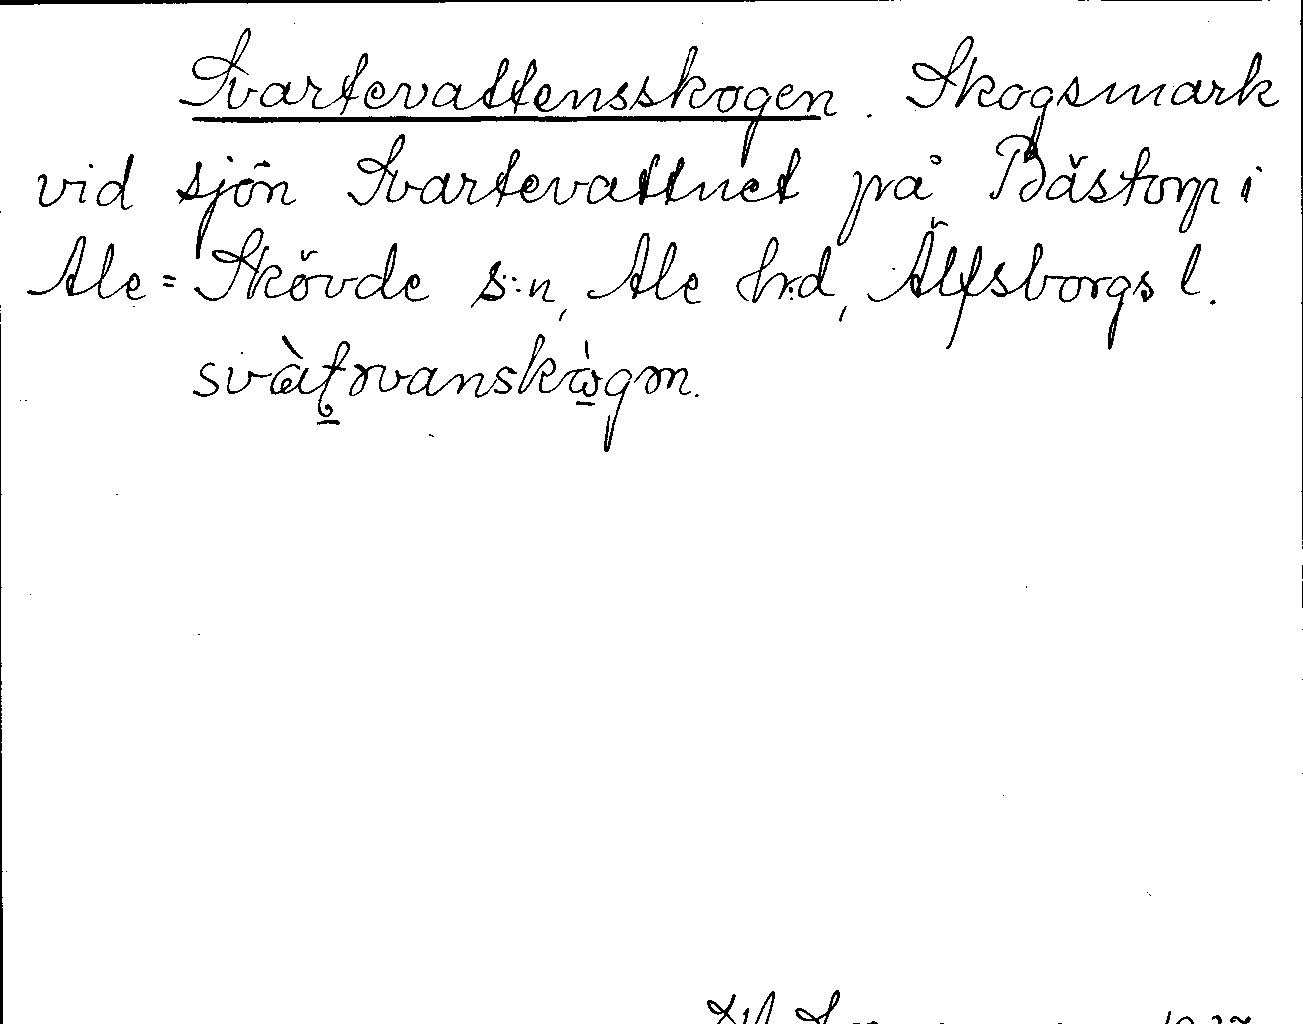 Svartevattensskogen. Skogsmark
vid sjön Svartevattnet på Bästorp i
Ale=Skövde s:n, Ale h:d, Älfsborgs l.
svàtrvanskògrn.